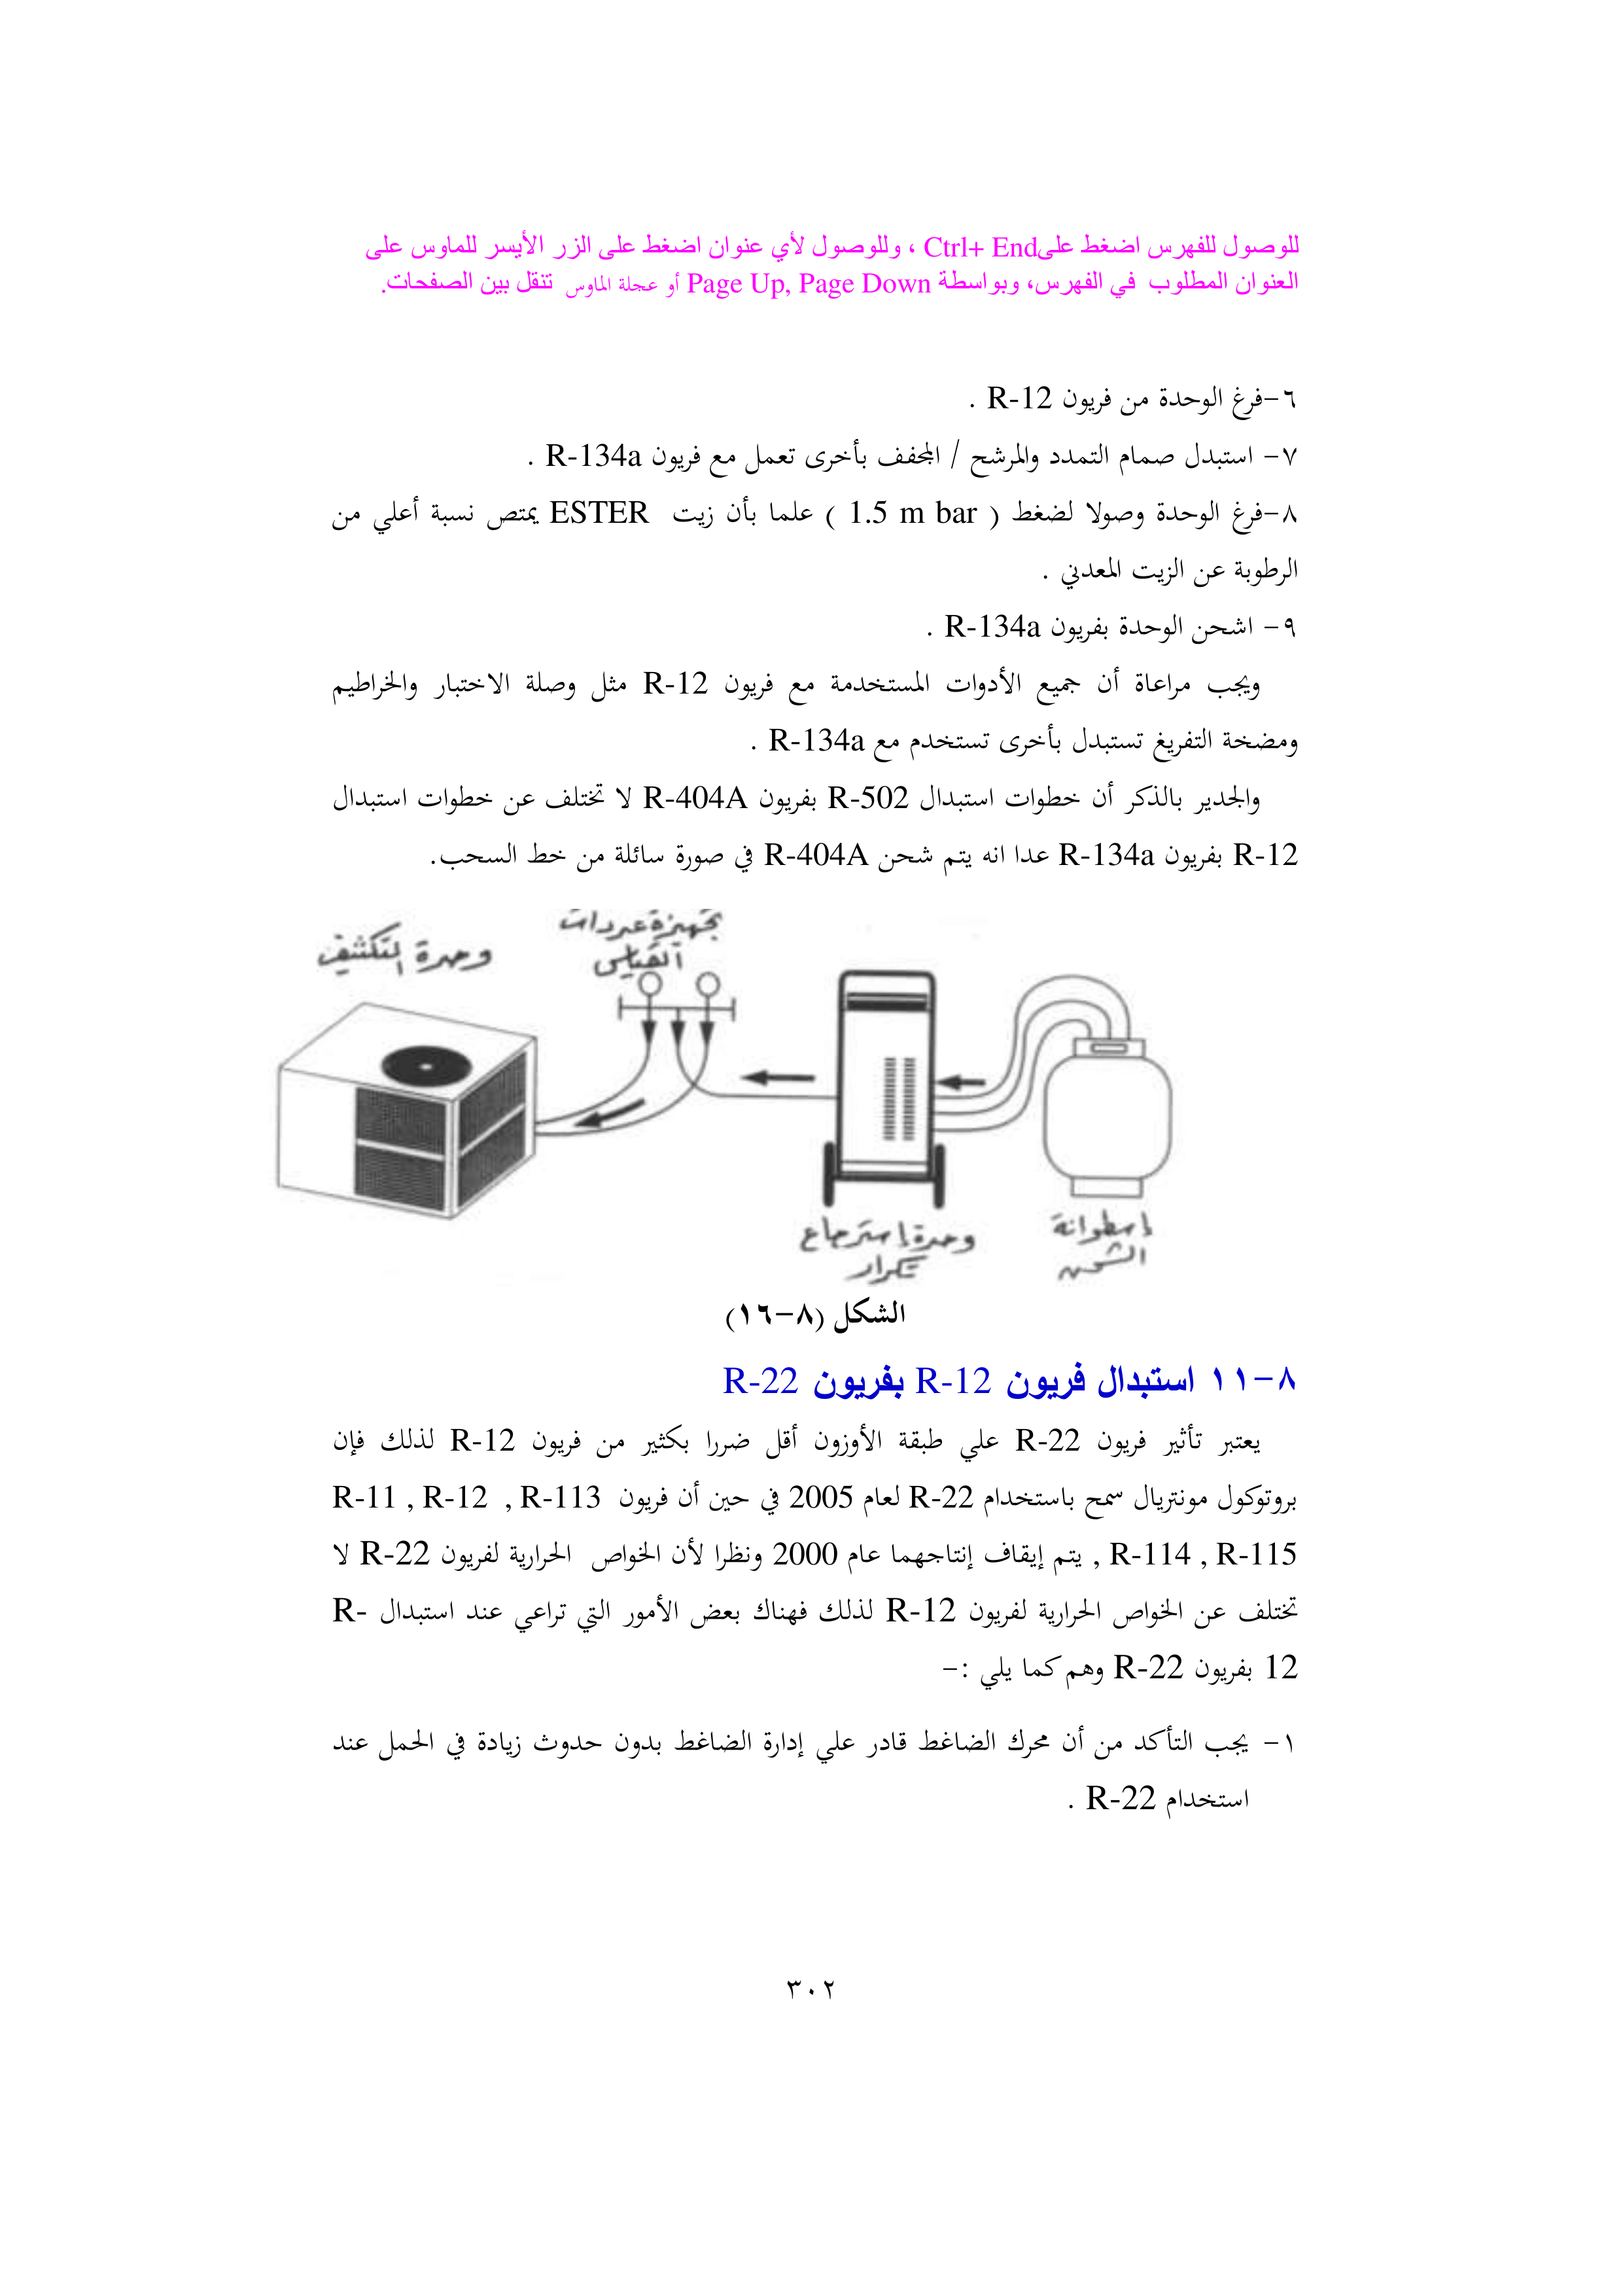 للوصول للفهرس اضغط علىCtrl+ End ، وللوصول لأي عنوان اضغط على الزر الأيسر للماوس على
العنوان المطلوب في الفهرس، وبواسطة Page Up, Page Down أو عجلة الماوس تنقل بين الصفحات.
٦-فرغ الوحدة من فريون R-12 .
٧- استبدل صمام التمدد والمرشح / المجفف بأخرى تعمل مع فريون R-134a .
٨-فرغ الوحدة وصولا لضغط ( 1.5 m bar ) علما بأن زيت ESTER يمتص نسبة أعلي من
الرطوبة عن الزيت المعدني .
٩- اشحن الوحدة بفريون R-134a .
ويجب مراعاة أن جميع الأدوات المستخدمة مع فريون R-12 مثل وصلة الاختبار والخراطيم
ومضخة التفريغ تستبدل بأخرى تستخدم مع R-134a .
والجدير بالذكر أن خطوات استبدال R-502 بفريون R-404A لا تختلف عن خطوات استبدال
R-12 بفريون R-134a عدا انه يتم شحن R-404A في صورة سائلة من خط السحب.
تجهيزة عدادات
القياس
وحدة التكثيف
إسطوانة
الشحن
وحدة إسترجاع
تكرار
الشكل (٨-١٦)
٨-١١ استبدال فريون R-12 بفريون R-22
يعتبر تأثير فريون R-22 علي طبقة الأوزون أقل ضررا بكثير من فريون R-12 لذلك فإن
بروتوكول مونتريال سمح باستخدام R-22 لعام 2005 في حين أن فريون R-11 , R-12 , R-113
, R-114 , R-115 يتم إيقاف إنتاجهما عام 2000 ونظرا لأن الخواص الحرارية لفريون R-22 لا
تختلف عن الخواص الحرارية لفريون R-12 لذلك فهناك بعض الأمور التي تراعي عند استبدال R-
12 بفريون R-22 وهم كما يلي :-
١- يجب التأكد من أن محرك الضاغط قادر علي إدارة الضاغط بدون حدوث زيادة في الحمل عند
استخدام R-22 .
٣٠٢